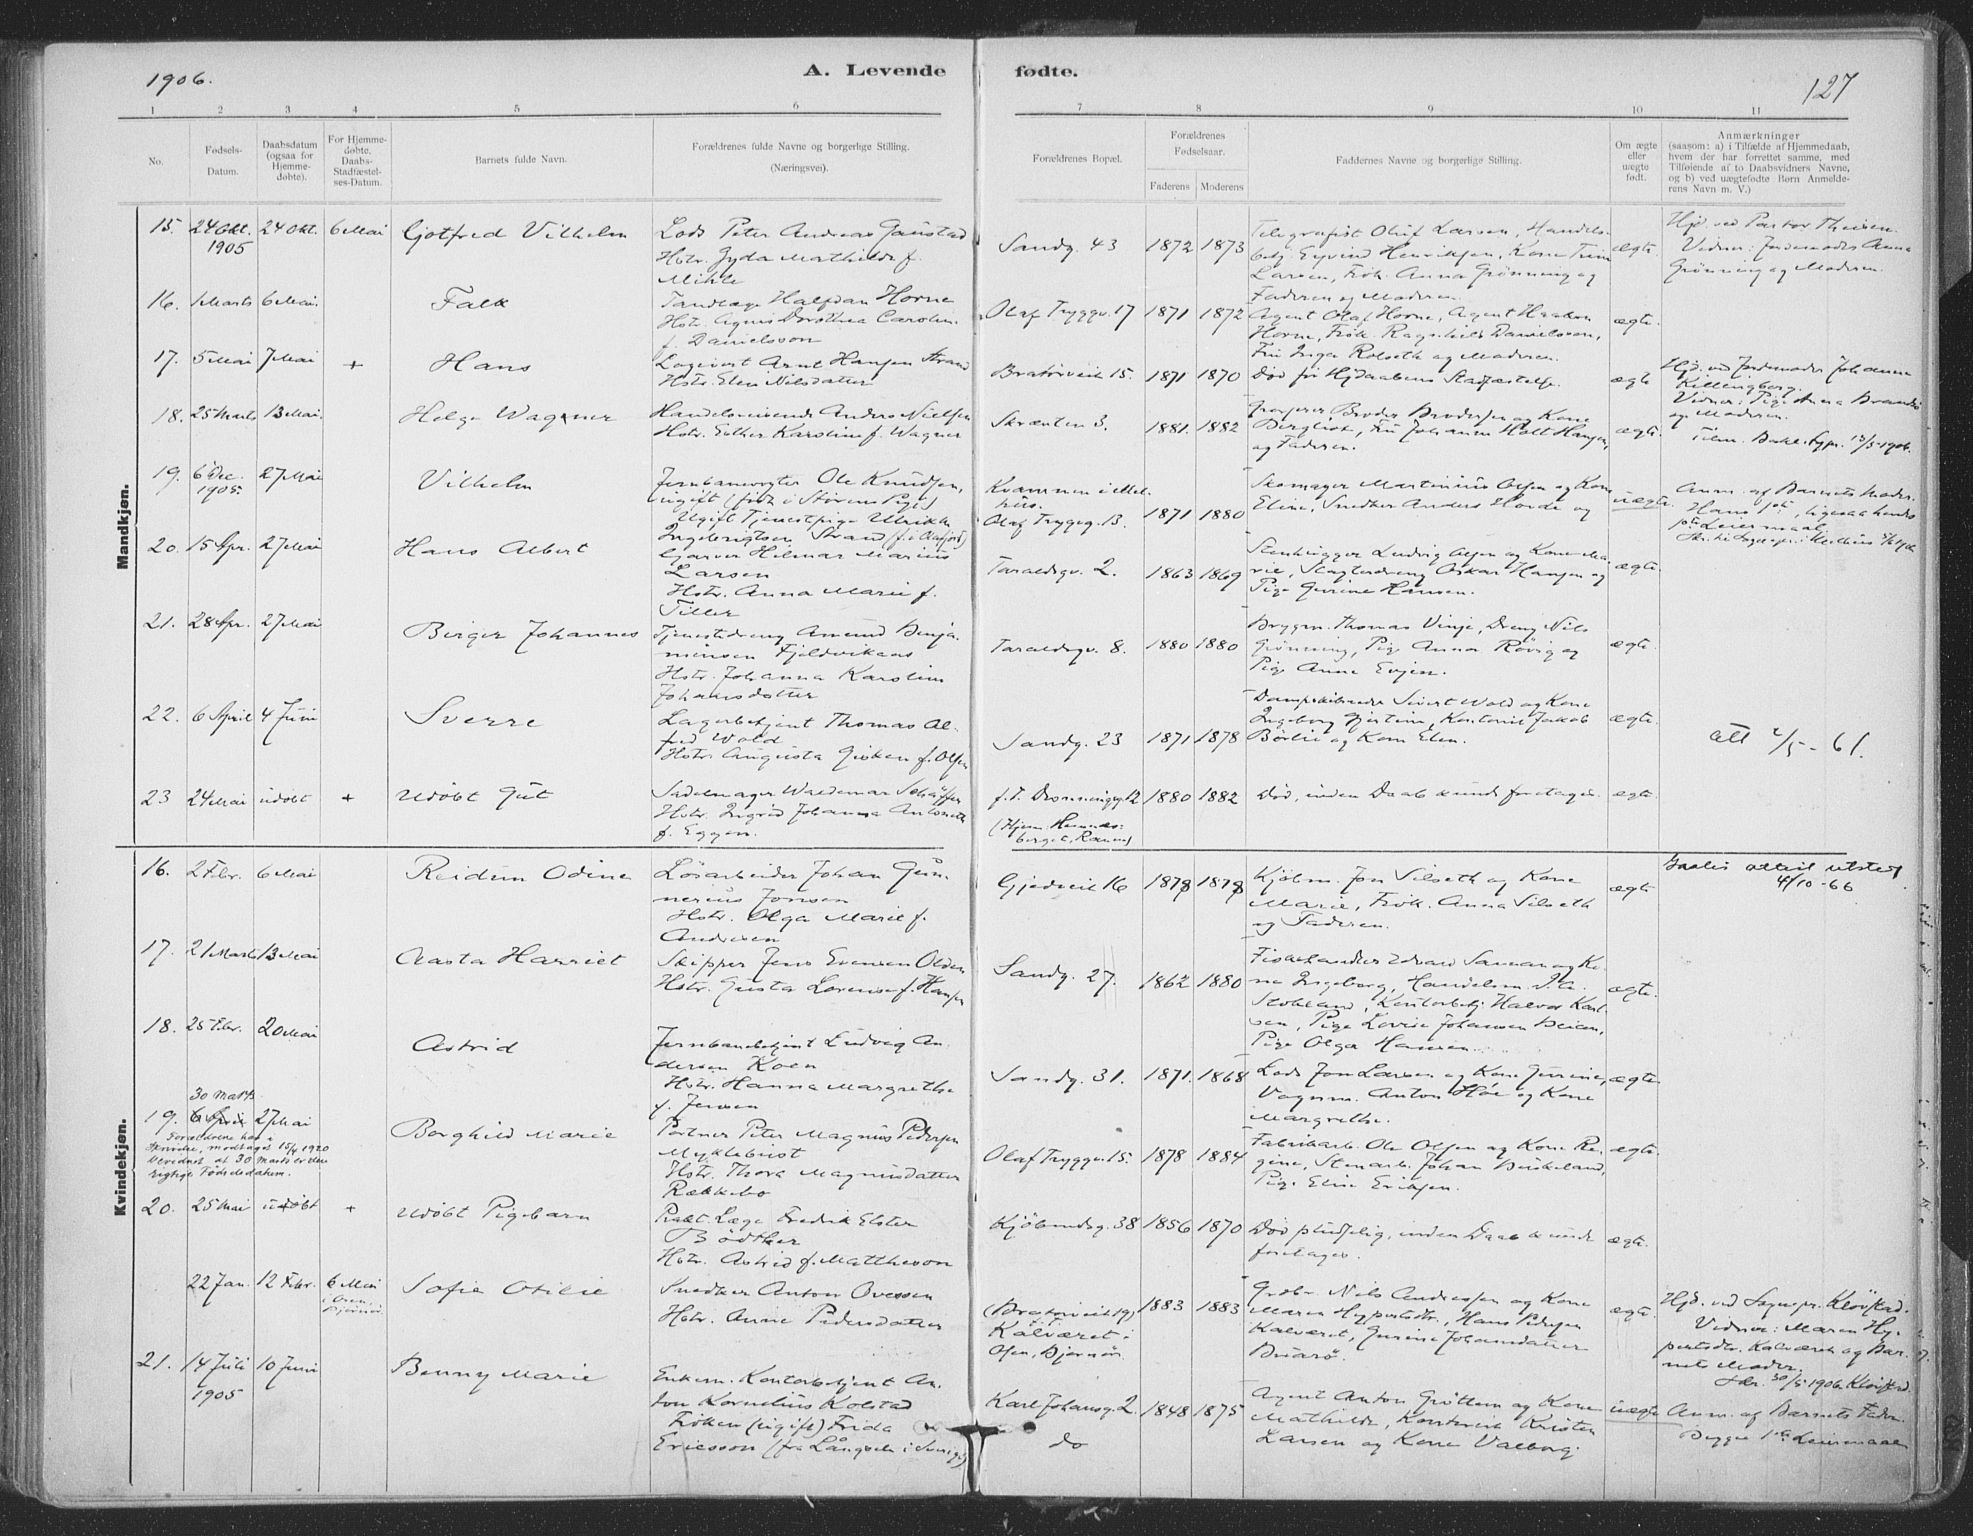 1906.
A. Levende fødte.
127
1 2 3 4 5 6 7 8 9 10 11
No.
Fødsels-
Datum.
Daabsdatum
(ogsaa for
Hjemme-
døbte).
For Hjemme-
døbte.
Daabs-
Stadfæstel-
ses-Datum.
Barnets fulde Navn.
Forældrenes fulde Navne og borgerlige Stilling.
(Næringsvei).
Forældrenes Bopæl.
Forældrenes
Fødselsaar.
Faderens Moderens
Faddernes Navne og borgerlige Stilling.
Om ægte
eller
uægte
født.
Anmærkninger
(saasom: a) i Tilfælde af Hjemmedaab,
hvem der har forrettet samme, med
Tilføiende af to Daabsvidners Navne,
og b) ved uægtefødte Børn Anmelde-
rens Navn m. V.)
Mandkjøn.
15. 24 Okt. 1905
24 Okt.
6 Mai
Gjotfred Vilhelm
Lods Peter Andreas Gaustad
Hstr. Gyda Mathilde f.
Mihle
Sandg. 43
1872 1873
Telegrafist Oluf Larsen, Handels-
betj. Eyvind Henriksen, Kone Trine
Larsen, Frøk. Anna Grønning og
Faderen og Moderen.
ægte.
Hjd. ved Pastor Theisen.
Vidner: Jordemoder Anna
Grønning og Moderen.
16. 1 Marts 6 Mai
Falk
Tandlæge Halfdan Horne
Hstr. Agnes Dorothea Caroline
f. Danielsson
Olaf Tryggv. 17
1871 1872
Agent Olaf Horne, Agent Haakon
Horne, Frøk. Ragnhild Danielsson,
Fru Inga Rolseth og Moderen.
ægte.
17. 5 Mai 7 Mai +
Hans
Logevert Arnt Hansen Strand
Hstr. Elen Nilsdatter
Bratørveit 15.
1871 1870
Død før Hjdaabens Stadfæstelse.
ægte
Hjd. ved Jordemoder Johanne
Killingberg.
Vidner: Pige Anna Brandsø
og Moderen.
18. 25 Marts 13 Mai.
Helge Wagner
Handelsreisende Anders Nielsen
Hstr. Esther Karoline f. Wagner
Skrænten 3.
1881. 1882
Grosserer Broder Brodersen og Kone
Bergliot, Fru Johanne Holt Hansen,
og Faderen.
ægte.
Tilm. Bakl. Sypr. 13/5-1906.
19. 6 Dec. 1905.
27 Mai
Vilhelm
Jernbanevogter Ole Knudsen,
ugift (født i Størens Pgj)
Ugift Tjenestpige Ulrikke
Ingebrigtsen Strand
Kvammen i Mel-
hus.
Olaf Trygvg. 13.
1871 1880
Skomager Martinius Olsen og Kone
Eline, Snedker Anders Horde og
uægte.
Anm. af Barnets Moder.
Hans 1ste, ligesaa hendes
1ste Leiermaal.
20. 15 Apr. 27 Mai
Hans Albert
Garver Hilmar Marius
Larsen
Hstr. Anna Marie f.
Tiller
Taraldsgv. 2.
1863 1869
Stenhugger Ludvig Olsen og Kone Ma-
rie, Slagterdreng Oskar Hansen og
Pige Gurine Hansen.
ægte.
21. 28 Apr. 27 Mai
Birger Johannes
Tjenestedreng Amund Benja-
minsen Fjeldvikaas
Hstr. Johanna Karoline
Johansdatter
Taraldsgv. 8.
1880 1880
Bryggm. Thomas Vinje, Dreng Nils
Grønning, Pige Anna Røvig og
Pige Anne Evjen.
ægte.
22. 6 April 4 Juni
Sverre
Lagerbetjent Thomas Al-
fred Wold
Hstr. Augusta Gisken f. Olsen
Sandg. 23
1871 1878
Dampskibsfører Sivert Wold og Kone
Ingeborg Gjertine, Kontorist Jakob
Børlie og Kone Elen.
ægte.
att 2/5 - 61.
23 24 Mai udøbt +
Udøbt Gut
Sadelmager Waldemar Schäffer
Hstr. Ingrid Johanna Antonette
f. Eggen.
f.T. Dronningsg. 12
(Hjem: Hemnes-
berget, Ranen)
1880 1882
Død, inden Daab kunde foretages.
ægte.
Kvindekjøn.
16. 2 Febr. 6 Mai
Reidun Odine
Løsarbeider Johan Gun-
nerius Jonsen
Hstr. Olga Marie f.
Andresen
Gjedveit 16
1878 1878
Kjøbm. Jon Silseth og Kone
Marie, Frøk. Anna Silseth
og Faderen.
ægte
Gratis attest utstedt
4/10-66
17. 21 Marts 13 Mai
Aasta Harriet
Skipper Jens Evensen Olden
Hstr. Gusta Lorense f. Hansen
Sandg. 27.
1862 1880
Fiskehandler Edvard Saman og Ko-
ne Ingeborg, Handelsm. J. A.
Stokland, Kontorbetj. Halvor Karl-
sen, Pige Lovise Johansen Beian,
Pige Olga Hansen.
ægte.
18. 25 Febr. 20 Mai
Astrid
Jernbanebetjent Ludvig An-
dersen Koen
Hstr. Hanna Margrethe
f. Jensen
Sandg. 31.
1871. 1868
Lods Jon Larsen og Kone Gurine,
Vognm. Anton Høe og Kone
Margrethe.
ægte.
30 Marts.
19. 6 April 27 Mai
Forældrene har i
Skrivelse, modtaget 15/4 1920
bevidnet at 30 Marts er den
rigtige Fødselsdatum.
Borghild Marie
Portner Peter Magnus Pedersen
Myklebust
Hstr. Thora Magnusdatter
Rækkebo
Olaf Tryggv. 15.
1878 1884
Fabrikarb. Ole Olsen og Kone Re-
gine, Stenarb. Johan Buskeland,
Pige Elise Eriksen.
ægte.
20. 25 Mai udøbt +
Udøbt Pigebarn
Prakt. Læge Fredrik Elster
Bødtker
Hstr. Astrid f. Mattheson
Kjøbmdsg. 38
1856 1870
Død pludselig, inden Daab kunde
foretages.
ægte.
22 Jan. 12 Febr. 6 Mai
i Osen,
Bjørnør.
Sofie Otilie
Snedker Anton Ovesen
Hstr. Anne Pedersdatter
(Bratørveit 19)
Kalværet i
Osen, Bjørnør.
1883 1883
Grdbr. Nils Andressen og Kone
Maren Hypertsdtr., Hans Pedersen
Kalværet, Gurine Johansdatter
Buarø.
ægte
Hjd. ved Sognepr. Kløvstad.
Vidner: Maren Hy-
pertsdtr. Kalværet og Bar-
nets Moder.
Skr. 30/5 1906 Kløvstad.
21. 14 Juli 1905
10 Juni
Benny Marie
Enkem. Kontorbetjent An-
ton Kornelius Kolstad
Frøken (ugift) Frida
Ericsson (fra Långsele i Sverige)
Karl Johansg. 2.
do
1848 1875
Agent Anton Grøttem og Kone
Mathilde, Kontorist Kristen
Larsen og Kone Valborg.
uægte
Anm. af Barnets Fader.
Begge 1ste Leiermaal